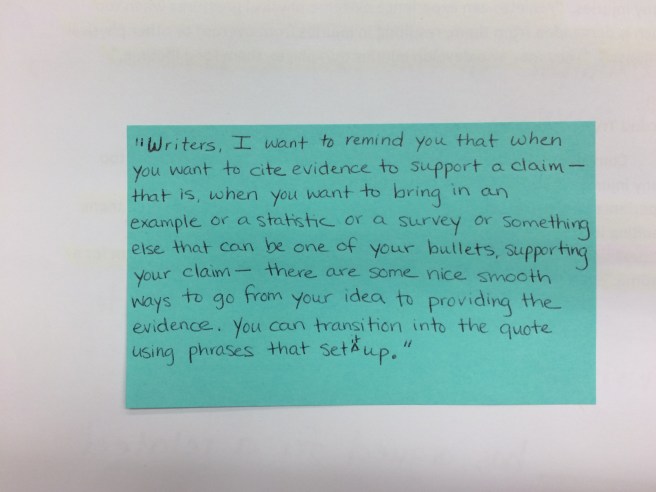 "Writers, I want to remind you that when
you want to cite evidence to support a claim —
that is, when you want to bring in an
example or a statistic or a survey or something
else that can be one of your bullets, supporting
your claim — there are some nice smooth
ways to go from your idea to providing the
evidence. You can transition into the quote
using phrases that set it up."